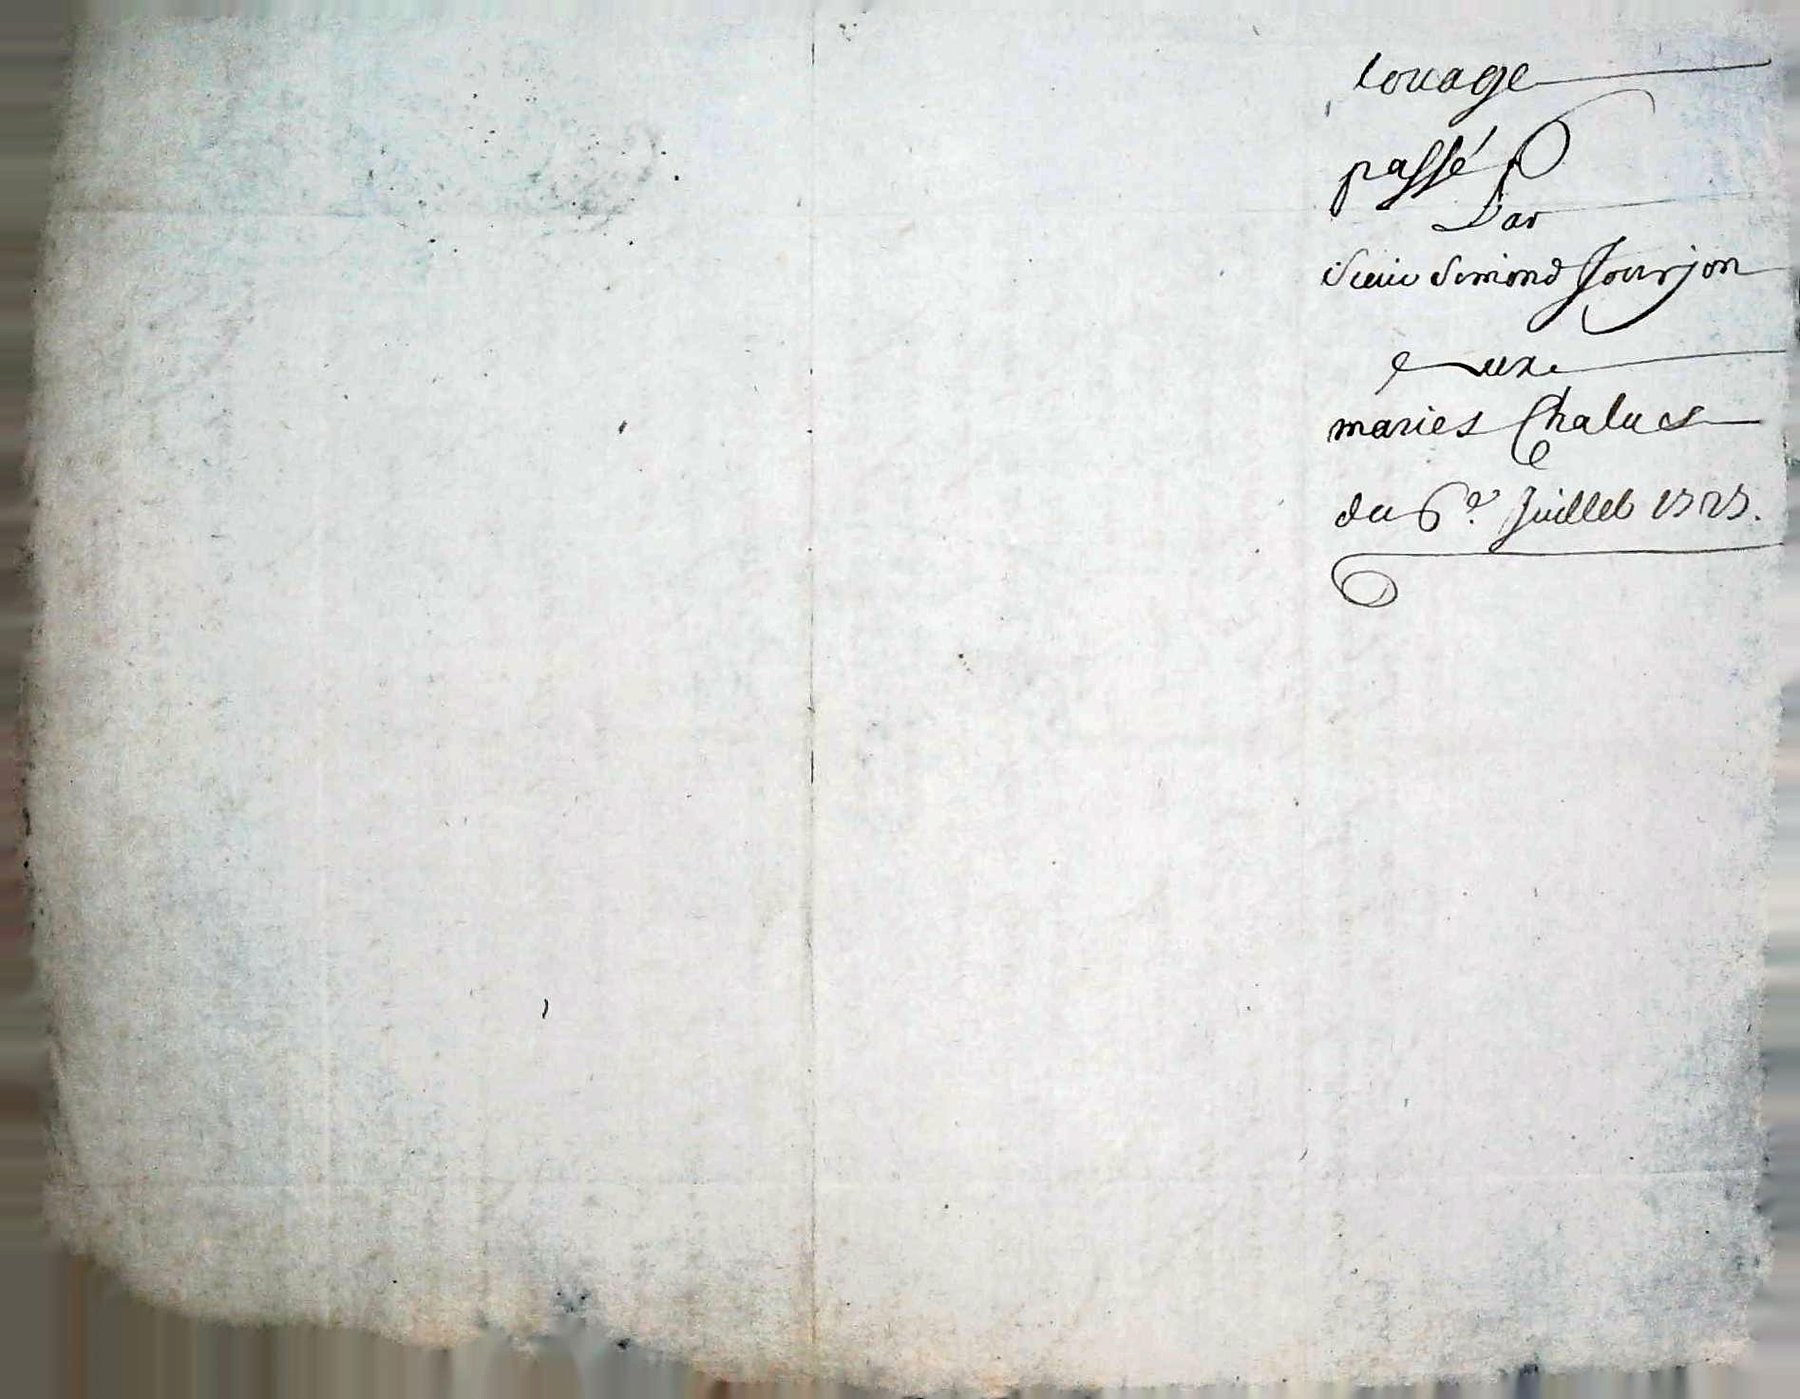 Louage
passé
Par
Sieur Simond Jourjon
aux
mariés Chalus
du 6e. Juillet 1727.